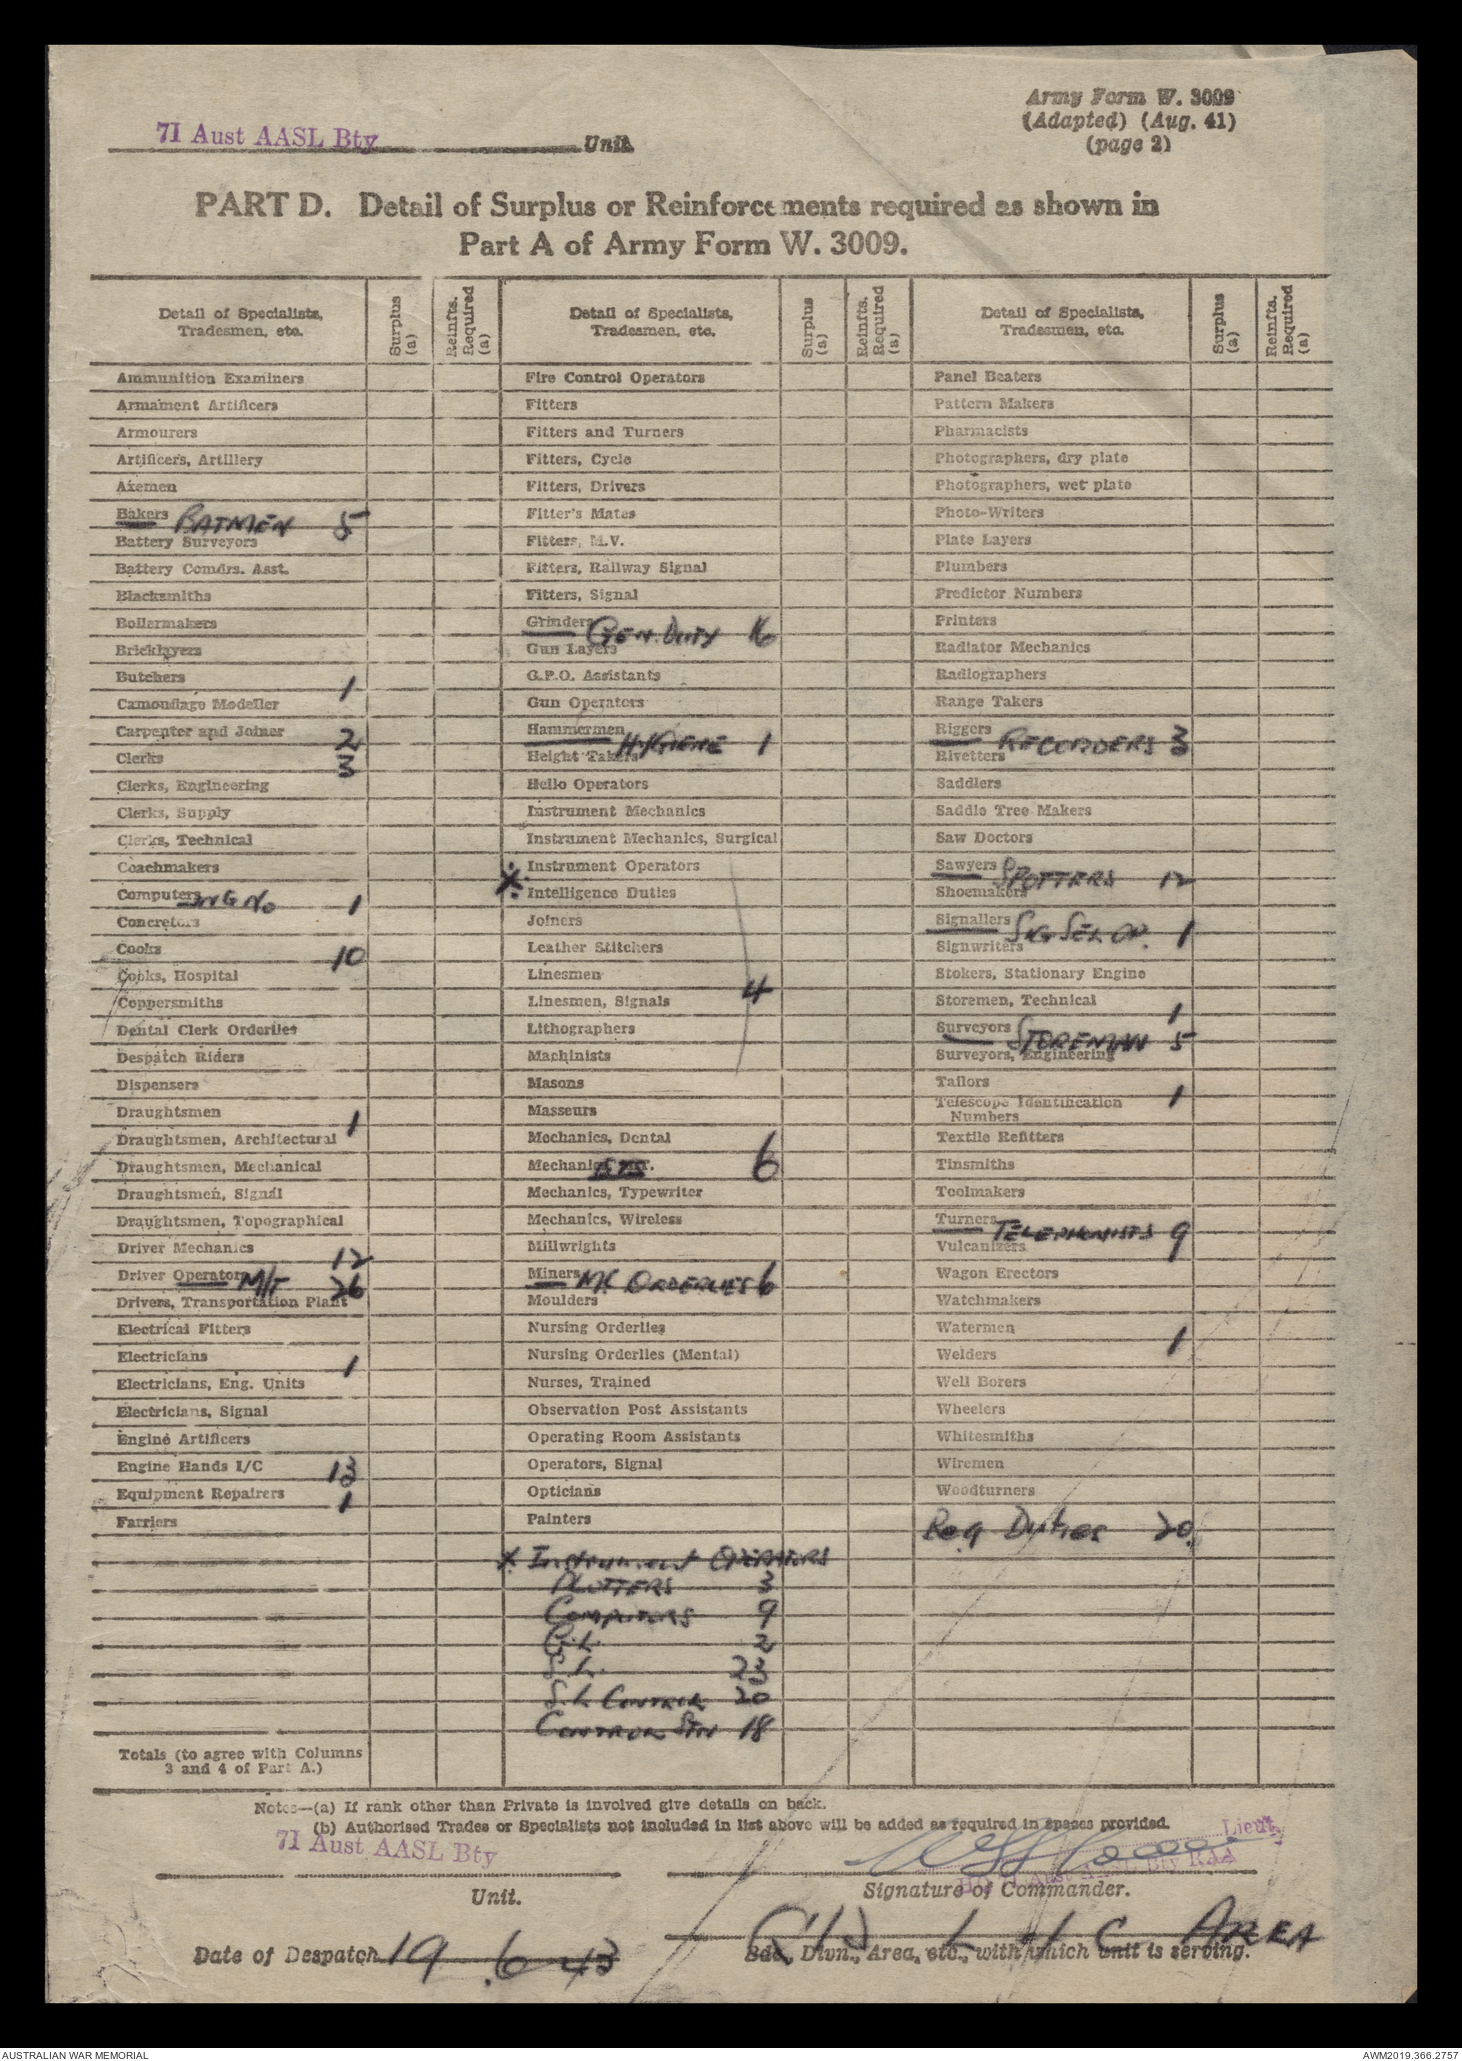 Army Form W. 3009
(Adapted) (Aug. 41)
(page 2)
71 Aust AASL Bty Unit.
PART D. Detail of Surplus or Reinforcements required as shown in
Part A of Army Form W. 3009.
Detail of Specialists, Tradesmen, etc.
Surplus (a)
Reinfts. Required (a)
Ammunition Examiners
Armament Artificers
Armourers
Artificers, Artillery
Axemen
Bakers BATMEN 5
Battery Surveyors
Battery Comdrs. Asst.
Blacksmiths
Boilermakers
Bricklayers
Butchers 1
Camouflage Modeller
Carpenter and Joiner 2
Clerks 3
Clerks, Engineering
Clerks, Supply
Clerks, Technical
Coachmakers
Computers 1
Concretors
Cooks 10
Cooks, Hospital
Coppersmiths
Dental Clerk Orderlies
Despatch Riders
Dispensers
Draughtsmen 1
Draughtsmen, Architectural
Draughtsmen, Mechanical
Draughtsmen, Signal
Draughtsmen, Topographical
Driver Mechanics 12
Driver Operators M/T 26
Drivers, Transportation Plant
Electrical Fitters
Electricians 1
Electricians, Eng. Units
Electricians, Signal
Engine Artificers
Engine Hands I/C 13
Equipment Repairers 1
Farriers
Totals (to agree with Columns
3 and 4 of Part A.)
Detail of Specialists, Tradesmen, etc.
Surplus (a)
Reinfts. Required (a)
Fire Control Operators
Fitters
Fitters and Turners
Fitters, Cycle
Fitters, Drivers
Fitter's Mates
Fitters, M.V.
Fitters, Railway Signal
Fitters, Signal
Grinders GEN. DUTY 16
Gun Layers
G.P.O. Assistants
Gun Operators
Hammermen HYGIENE 1
Height Takers
Hello Operators
Instrument Mechanics
Instrument Mechanics, Surgical
X Instrument Operators
Intelligence Duties
Joiners
Leather Stitchers
Linesmen
Linesmen, Signals 4
Lithographers
Machinists
Masons
Masseurs
Mechanics, Dental
Mechanics 6
Mechanics, Typewriter
Mechanics, Wireless
Millwrights
Miners MC ORDERLIES 6
Moulders
Nursing Orderlies
Nursing Orderlies (Mental)
Nurses, Trained
Observation Post Assistants
Operating Room Assistants
Operators, Signal
Opticians
Painters
X Instrument OPERATORS
PLOTTERS 3
COMPUTORS 9
G.L. 2
S.L. 23
S.L CONTROL 20
CONTROL STN 18
Detail of Specialists, Tradesmen, etc.
Surplus (a)
Reinfts. Required (a)
Panel Beaters
Pattern Makers
Pharmacists
Photographers, dry plate
Photographers, wet plate
Photo-Writers
Plate Layers
Plumbers
Predictor Numbers
Printers
Radiator Mechanics
Radiographers
Range Takers
Riggers RECORDERS 3
Rivetters
Saddlers
Saddle Tree Makers
Saw Doctors
Sawyers SPOTTERS 12
Shoemakers
Signallers 1
Signwriters
Stokers, Stationary Engine
Storemen, Technical 1
Surveyors STOREMAN 5
Surveyors, Engineering
Tailors 1
Telescope Identification
Numbers
Textile Refitters
Tinsmiths
Toolmakers
Turners TELEPHONISTS 9
Vulcanizers
Wagon Erectors
Watchmakers
Watermen
Welders 1
Well Borers
Wheelers
Whitesmiths
Wiremen
Woodturners
Reg Duties 20
Notes—(a) If rank other than Private is involved give details on back.
(b) Authorised Trades or Specialists not included in list above will be added as required in spaces provided.
71 Aust AASL Bty
Unit.
Lieut.
Signature of Commander.
Date of Despatch 19.6.43
L of C AREA
Bde., Divn., Area, etc., with which unit is serving.
AUSTRALIAN WAR MEMORIAL
AWM2019.366.2757